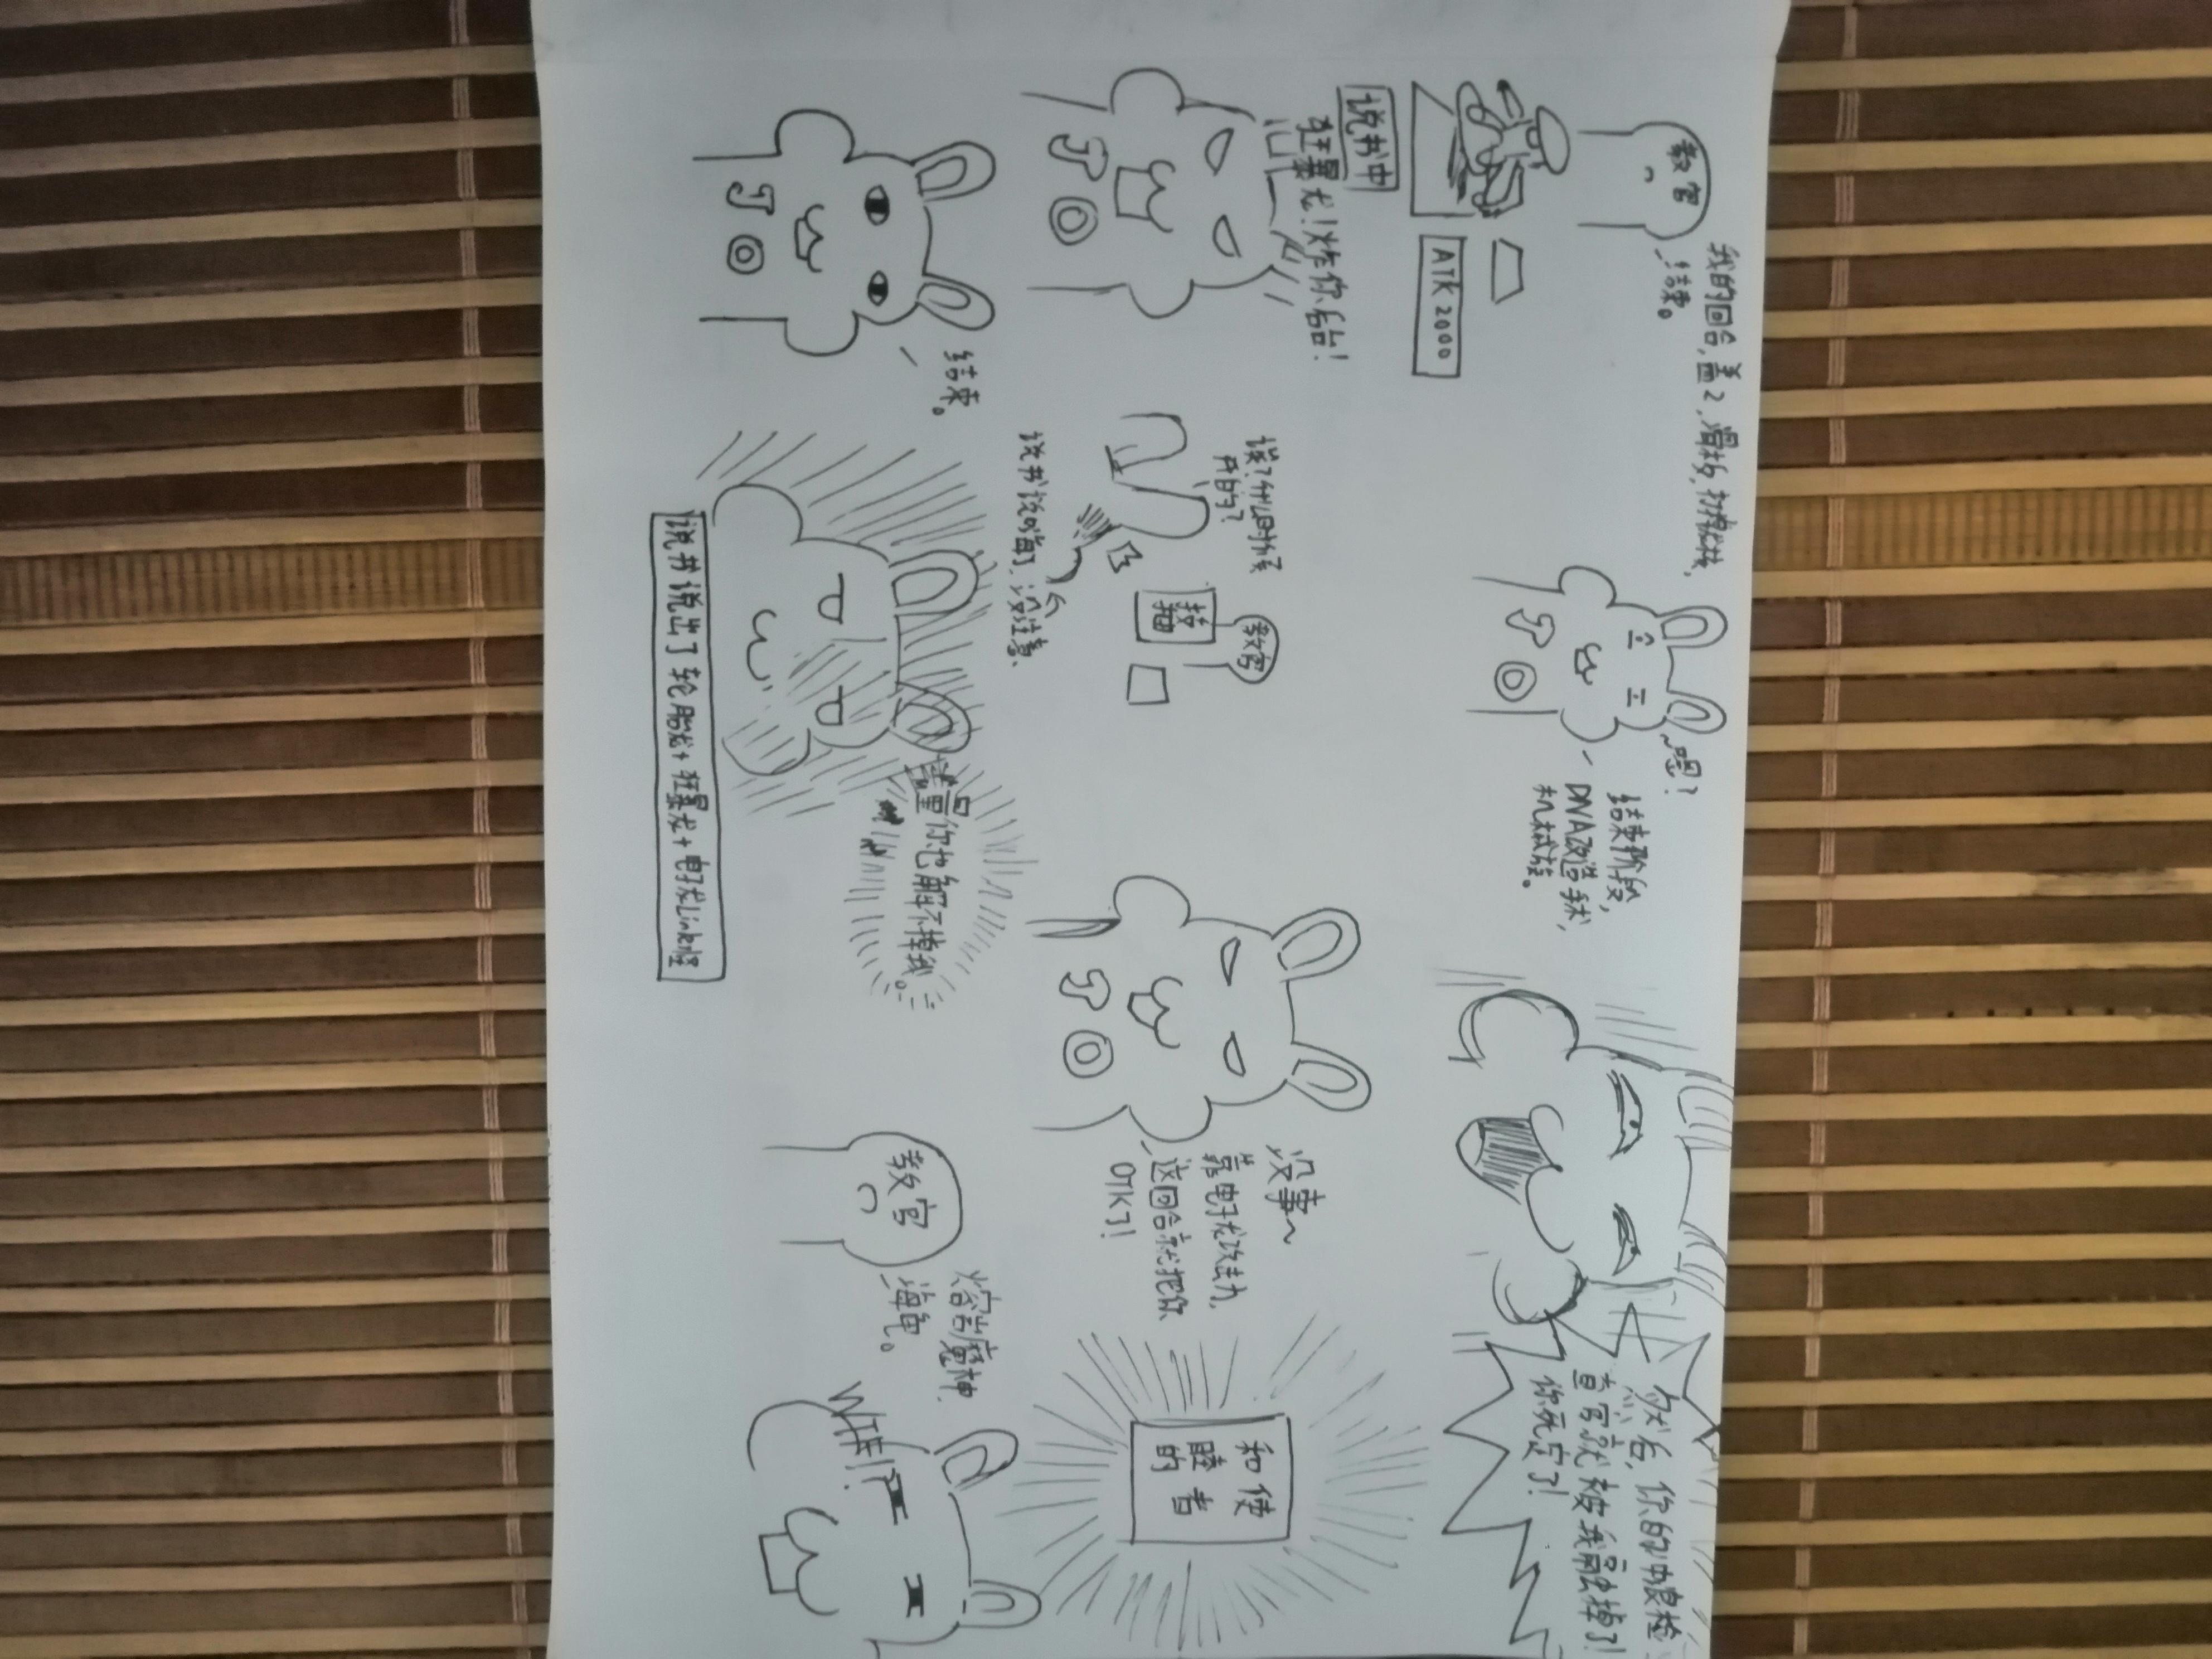 教官
结束。
我的回合,盖2,
JO
嗯?
结束阶段,
DNA改造手术,
机械族。
然后,你的冲浪检
查官就被我融掉了!
你死定了!
ATK 2000
说书中
狂暴龙!炸你后台!
JO
诶?什么时候
开的?
教官
技抽
说书说嗨了,没注意
JO
没事~
靠电子龙攻击力,
这回合就把你
OTK了!
和睦的
使者
结束。
JO
量你也解不掉我。
说书说出了轮胎龙+狂暴龙+电子龙Link怪
教官
熔岩魔神,
海龟。
WTF!?